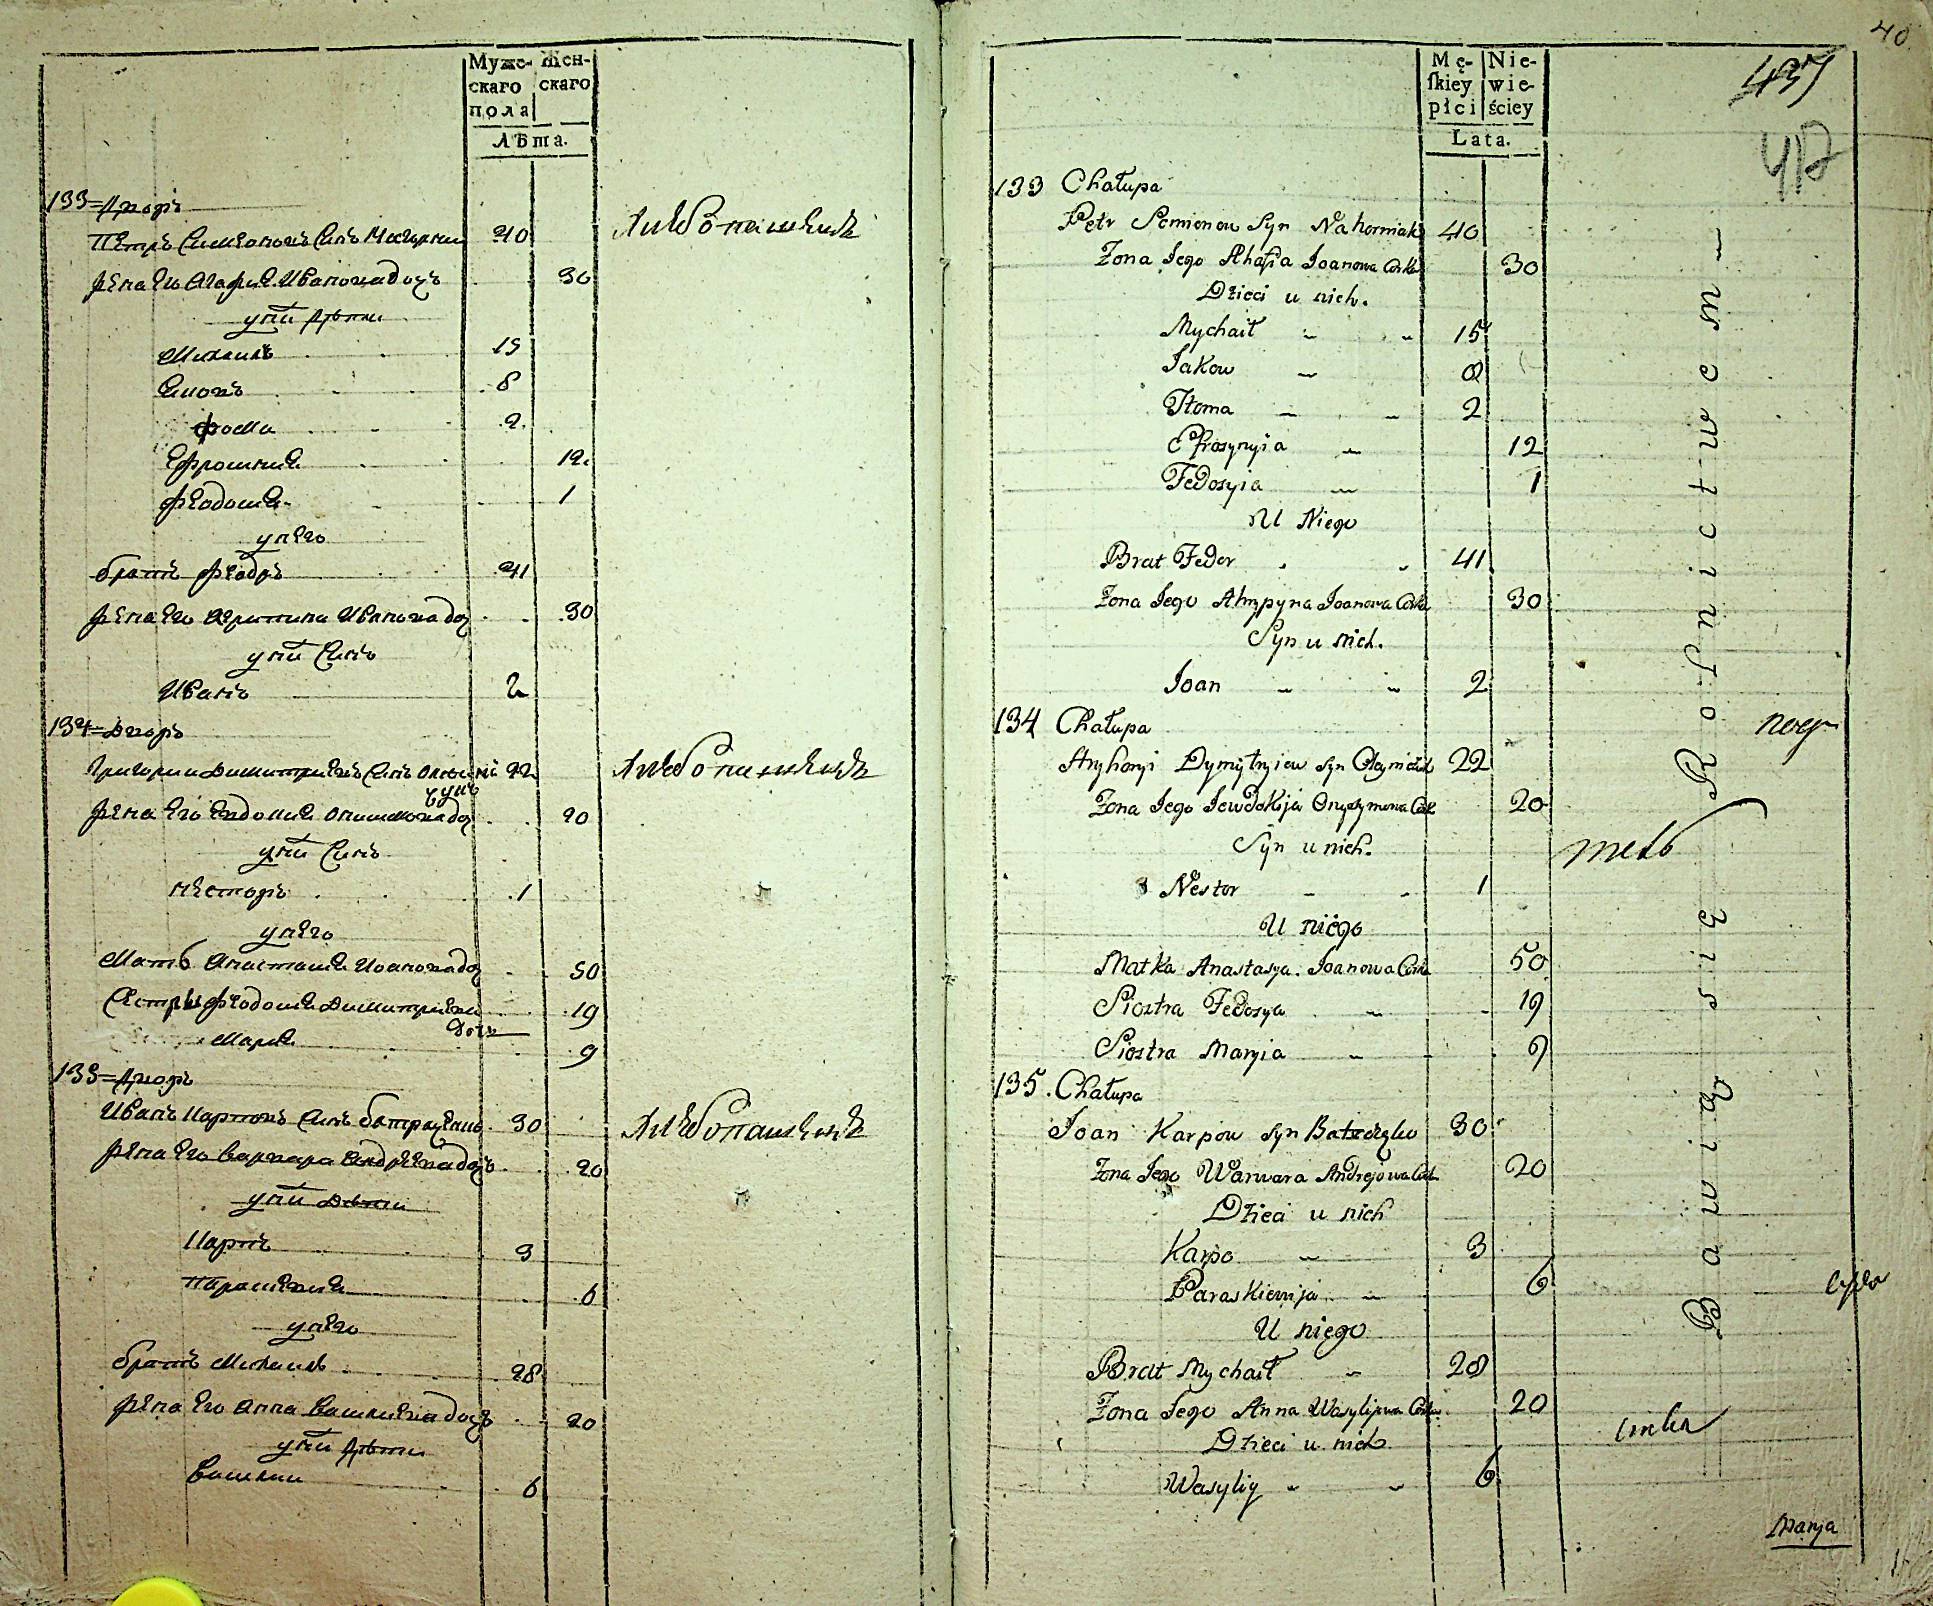 Муже-
скаго
пола
Жен-
скаго
Лѣта.
133 = Дворъ
Петръ Симеоновъ Синъ 40 Хлебопашецъ
Жена Его Агафия Иванова доч 30
у них Дети
Михаилъ 15
8
Фома 2
Ефросиния 12
Феодосия 1
у него
братъ Феодоръ 41
Жена Его Агрипина Иванова доч 30
у них Синъ
Иванъ 2
134 = Дворъ
Григории Димитриевъ Синъ 22 Хлебопашецъ
Жена Его Евдокия Онисимова доч 20
у них Синъ
Несторъ 1
у него
Мать Анастасия Иванова доч 50
Сестры Феодосия Димитриева 19
дочь
Мария 9
135 = Дворъ
Иванъ Карповъ Синъ 30 Хлебопашецъ
Жена Его Варвара Андреева доч 20
у них Дети
Карпъ 3
Параскевия 6
у него
братъ Михаилъ 28
Жена Его Анна Василиева дочь 20
у них Дети
Василии 6
40
437
417
Mę-
skiey
płci
Nie-
wie-
ściey
Lata.
133 Chałupa
Petr Semionow Syn Nahorniak 40
Żona Jego Ahafia Joanowa Córka 30
Dzieci u nich.
Mychaił 15
Jakow 8
Tłoma 2
Efrosynyia 12
Fedosyia 1
U Niego
Brat Fedor 41
Żona Jego Ahrypyna Joanowa Córka 30
Syn u nich.
Joan 2
134 Chałupa
Hryhoryi Dymytryiew Syn 22
Żona Jego Jewdokija Onyszymowa Cór 20
Syn u nich.
Nestor 1
U niego
Matka Anastasya Joanowa Córka 50
Siostra Fedosya 19
Siostra Maryia 9
135. Chałupa
Joan Karpow Syn 30
Żona Jego Warwara Andrejowa Córk 20
Dzieci u nich
Karpo 3
Paraskiewija 6
U niego
Brat Mychaił 28
Żona Jego Anna Wasylijewa Córka 20
Dzieci u nich
Wasylig 6
Marya